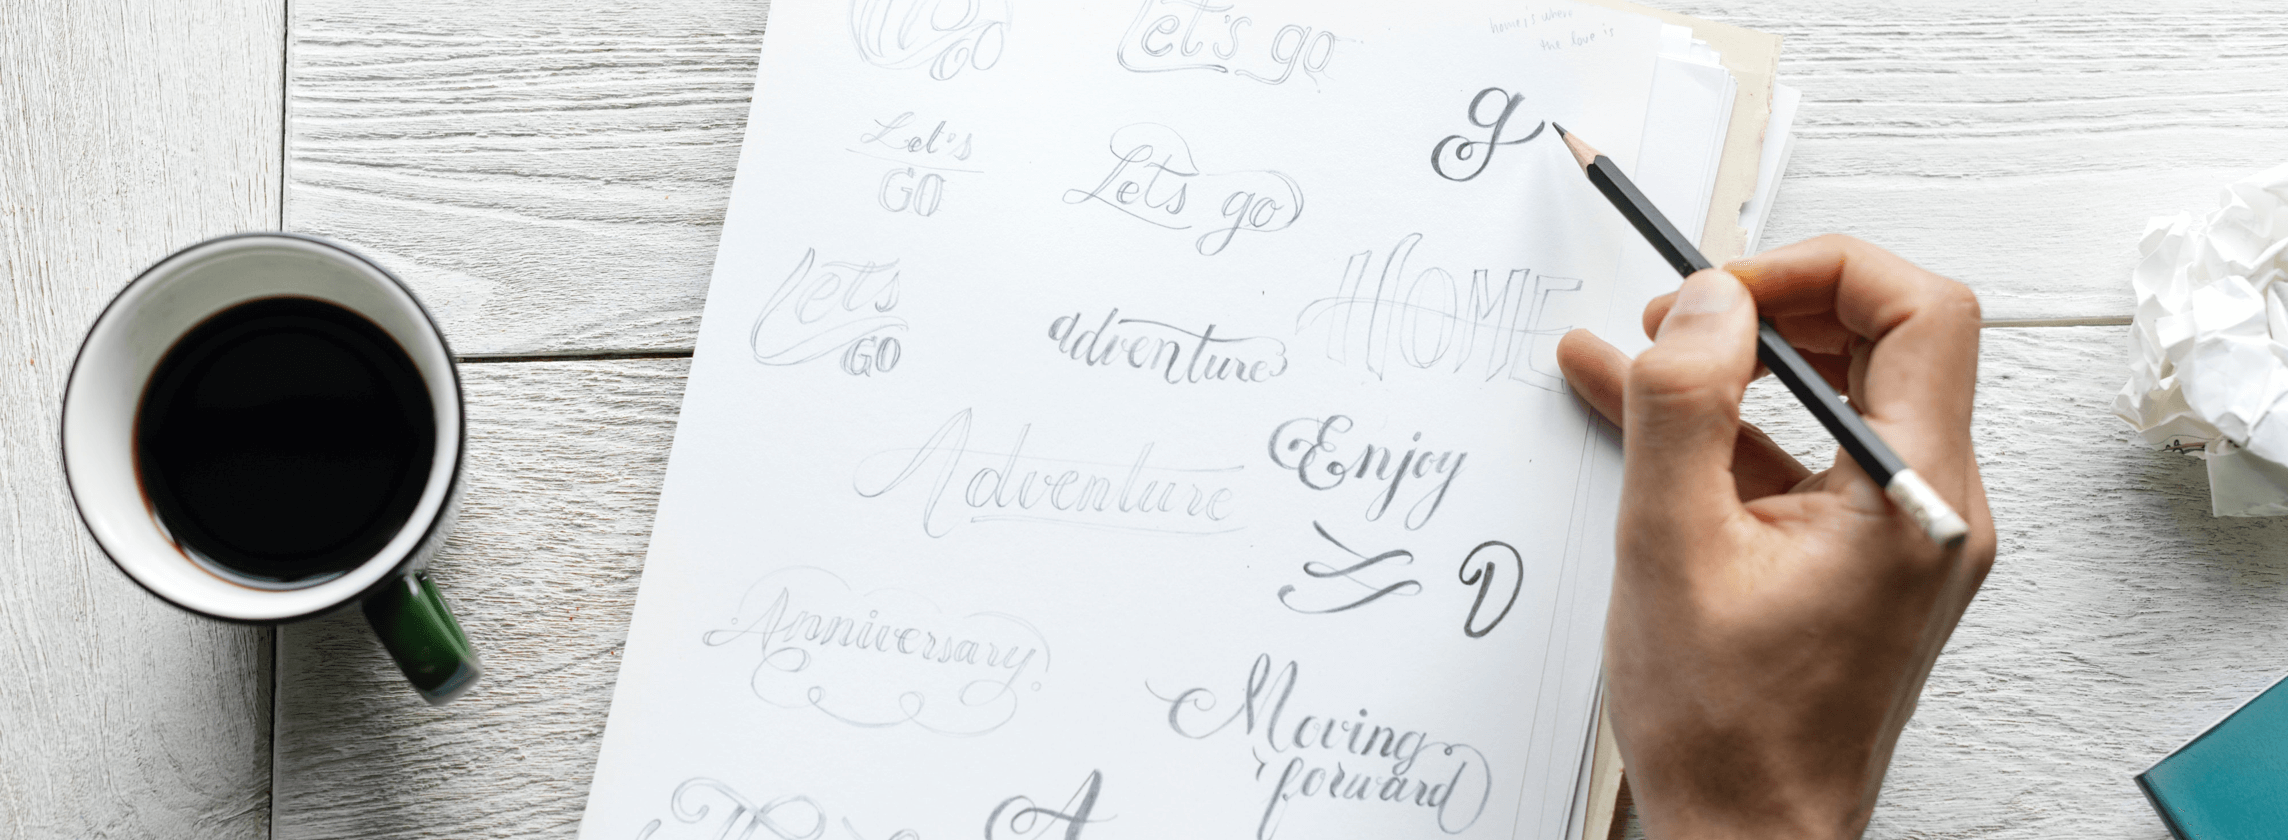 GO
Let's go
home is where
the love is
g
Let's
GO
Lets go
Lets
GO
HOME
adventure
Enjoy
Adventure
D
Anniversary
Moving
forward
A